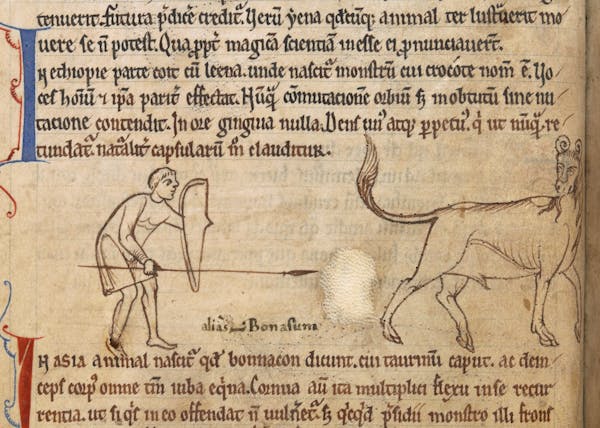 tenuerit. Futura p̃dicẽ creditᷣ. Verũ yena qd̃cũq; animal ter lustᷣuerit mo
uere se ñ potest. Qua ꝓpt̃ magicã scientiã inesse ei ꝓnunciauer̃t.
In ethiopie parte coit cũ leena. unde nascitᷣ monstrũ cui crocote nom̃ ẽ. Uo
ces hoĩũ ⁊ ip̃a parit̃ effectat. Nũq̃ cõmutacionẽ orbiũ sꝫ in obtutũ sine nu
tacione contendit. In ore gingiua nulla. Dens unᷣ atq; ꝑpetuᷣ. q̇ ut nũq̃ re
tundatᷣ. natᷣalit̃ capsularũ m̃ clauditᷣ.
alias Bonasum
In asia animal nascitᷣ qd̃ bonnacon dicunt. cui taurinũ caput. ac dein
ceps corpᷣ omne tm̃ iuba eq̇na. Cornua aũ ita multiplici flexu in se recur
rentia. ut si q̇s in eo offendat ñ uulñetᷣ. sꝫ q̇cq̇d p̃sidii monstro illi frons